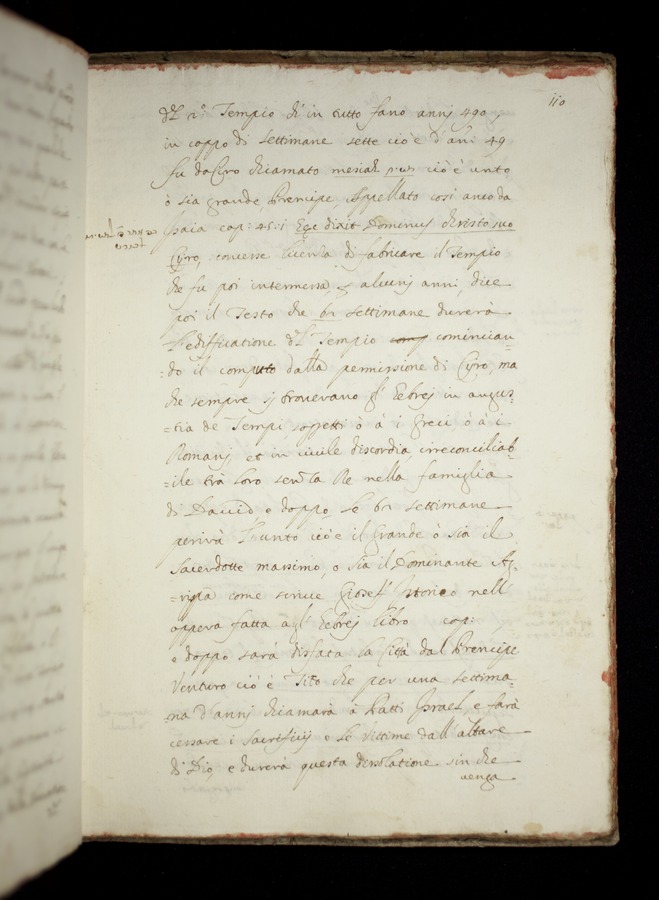 110
del 2.º Tempio ch'in tutto fano annj 490,
in coppo di settimane sette cio è d'ani 49
fu da Ciro chiamato mesiah cio è unto
ò sia grande Prencipe, Appellato così anco da
Isaia cap: 45: 1 Ege dixit Dominus christo suo
Cyro, concesse licenza di fabricare il Tempio
che fu poi intermessa alcunj annj, dice
poi il Testo che 62 settimane durerà
l'edificatione del Tempio cominciau
=do il computo dalla permissione di Cyro, ma
che sempre si troverano gl' Eebrej in angus=
=tia de Tempi soggetti ò à i Greci ò à i
Romanj, et in civile discordia irreconciliab
=ile trà loro senza Re nella famiglia
di David e doppo le 62 settimane
perirà l'unto cio è il Grande ò sia il
Sacerdotte massimo, o sia il Dominante Ag=
=ripa come scrive Giosef Istorico nell'
oppera fatta agl' Eebrej libro cap:
e doppo sarà disfata la Città dal Prencipe
Venturo cio è Tito che per una settima=
=na d'annj chiamarà à Patti Israel, e farà
cessare i sacrificij e le Vittime dall'altare
di Dio, e durerà questa dessolatione sin che
venga